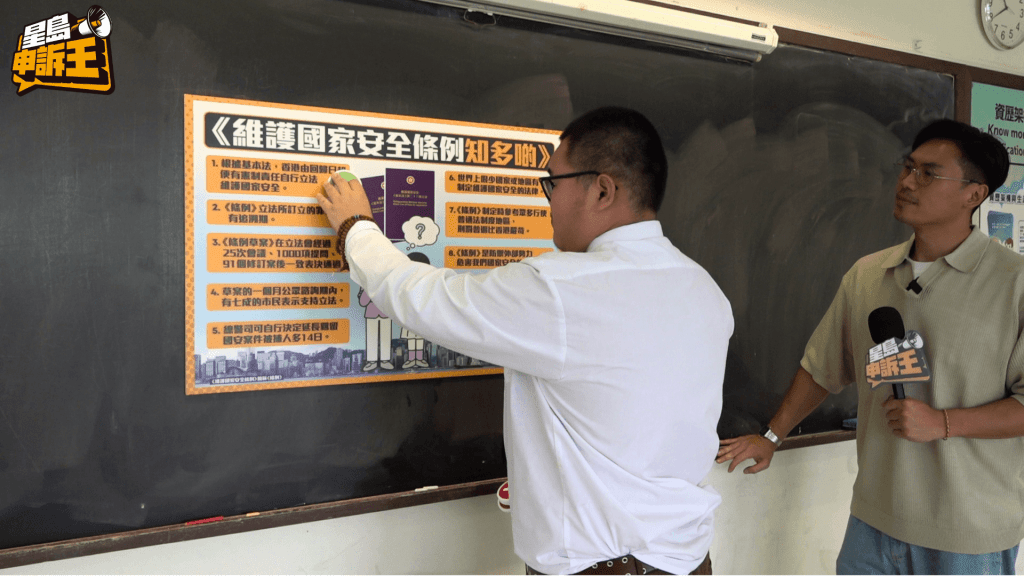 星島
申訴王
《維護國家安全條例知多啲》
1. 根據基本法，香港由回歸日起
便有憲制責任自行立法
維護國家安全。
2. 《條例》立法所訂立的
有追溯期。
3. 《條例草案》在立法會經過
25次會議、1000項提問、
91個修訂案後一致表決通過
4. 草案的一個月公眾諮詢期內，
有七成的市民表示支持立法
5. 總警司可自行決定延長羈留
國安案件被捕人多14日。
?
6. 世界上
制定維護國家安全的法律
7. 《條例》制定時參考眾多行使
普通法制度地區，
8. 《條例》是防禦外部勢力
《維護國家安全條例》簡稱《條例》
資歷架
Know mo
星島
申訴王
7 6 5